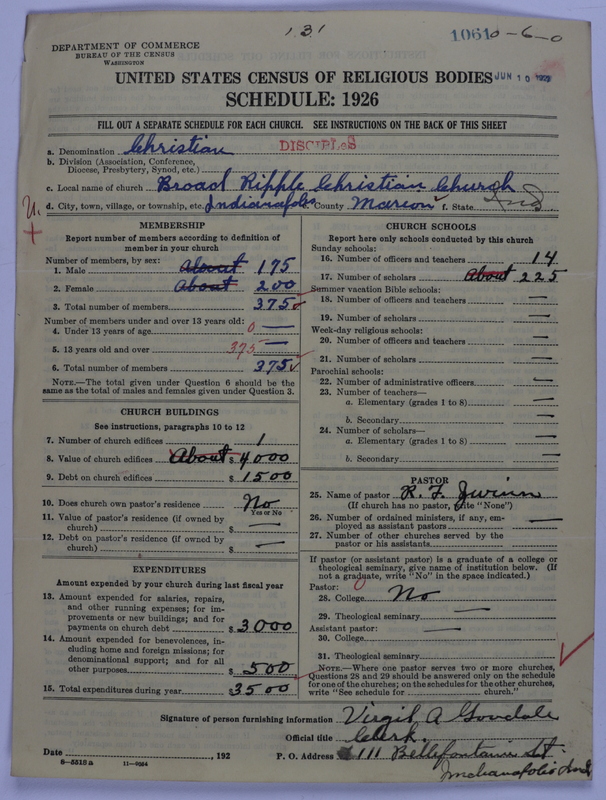 131
10610-6-0
DEPARTMENT OF COMMERCE
BUREAU OF THE CENSUS
WASHINGTON
JUN 10 192
UNITED STATES CENSUS OF RELIGIOUS BODIES
SCHEDULE: 1926
FILL OUT A SEPARATE SCHEDULE FOR EACH CHURCH. SEE INSTRUCTIONS ON THE BACK OF THIS SHEET
a. Denomination Christian DISCIPLES
b. Division (Association, Conference,
Diocese, Presbytery, Synod, etc.)
c. Local name of church Broad Ripple Christian Church
d. City, town, village, or township, etc. Indianapolis e. County Marion f. State Ind
MEMBERSHIP
Report number of members according to definition of
member in your church
Number of members, by sex:
1. Male About 175
2. Female About 200
3. Total number of members 375
Number of members under and over 13 years old:
4. Under 13 years of age 0 —
5. 13 years old and over 375 —
6. Total number of members 375
NOTE.—The total given under Question 6 should be
the same as the total of males and females given under Question 3.
CHURCH BUILDINGS
See instructions, paragraphs 10 to 12
7. Number of church edifices 1
8. Value of church edifices About $4000
9. Debt on church edifices $1500
10. Does church own pastor's residence No
Yes or No
11. Value of pastor's residence (if owned by
church) $ —
12. Debt on pastor's residence (if owned by
church) $ —
EXPENDITURES
Amount expended by your church during last fiscal year
13. Amount expended for salaries, repairs,
and other running expenses; for im-
provements or new buildings; and for
payments on church debt $3000
14. Amount expended for benevolences, in-
cluding home and foreign missions; for
denominational support; and for all
other purposes $500
15. Total expenditures during year $3500
CHURCH SCHOOLS
Report here only schools conducted by this church
Sunday schools:
16. Number of officers and teachers 14
17. Number of scholars About 225
Summer vacation Bible schools:
18. Number of officers and teachers —
19. Number of scholars —
Week-day religious schools:
20. Number of officers and teachers —
21. Number of scholars —
Parochial schools:
22. Number of administrative officers —
23. Number of teachers—
a. Elementary (grades 1 to 8) —
b. Secondary —
24. Number of scholars—
a. Elementary (grades 1 to 8) —
b. Secondary —
PASTOR
25. Name of pastor R. F.
(If church has no pastor, write "None")
26. Number of ordained ministers, if any, em-
ployed as assistant pastors —
27. Number of other churches served by the
pastor or his assistants
If pastor (or assistant pastor) is a graduate of a college or
theological seminary, give name of institution below. (If
not a graduate, write "No" in the space indicated.)
Pastor:
28. College No
29. Theological seminary —
Assistant pastor: —
30. College
31. Theological seminary
NOTE.—Where one pastor serves two or more churches,
Questions 28 and 29 should be answered only on the schedule
for one of the churches; on the schedules for the other churches,
write "See schedule for church."
Signature of person furnishing information Virgil A
Official title Clerk.
Date , 192
P. O. Address 111 Bellefontaine St.
Indianapolis Ind
8-5518 a 11-9954